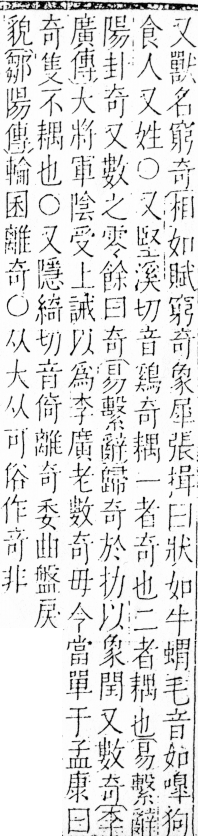 又獸名窮奇相如賦窮奇象犀張揖曰狀如牛蝟毛音如嘷狗
食人又姓○又堅溪切音鷄奇耦一者奇也二者耦也易繫辭
陽卦奇又數之零餘曰奇易繫辭歸奇於扐以象閏又數奇李
廣傳大將軍陰受上誡以爲李廣老數奇毋令當單于孟康曰
奇隻不耦也○又隱綺切音倚離奇委曲盤戾
貌鄒陽傳輪囷離奇○从大从可俗作竒非